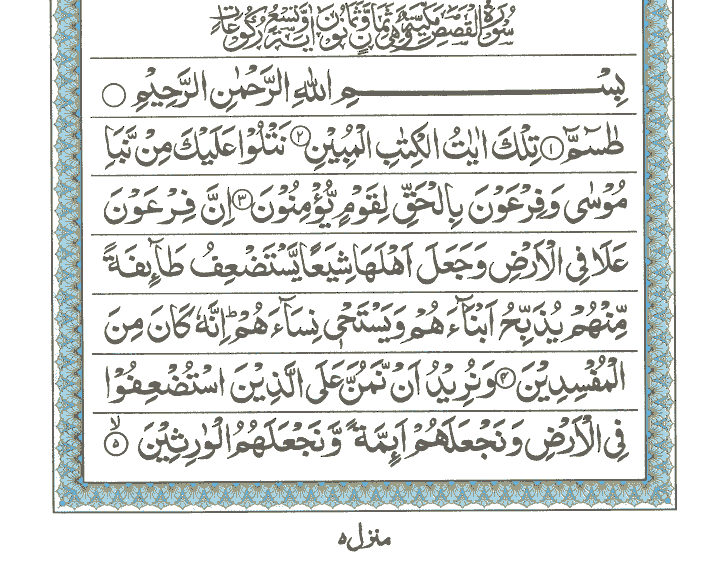 سُوْرَةُ الْقَصَصِ مَكِّيَّةٌ وَّهِيَ ثَمَانٍ وَّثَمَانُوْنَ اٰيَةً وَّتِسْعُ رُكُوْعَاتٍ
بِسْمِ اللّٰهِ الرَّحْمٰنِ الرَّحِيْمِ
طٰسٓمّٓ ۝۱ تِلْكَ اٰيٰتُ الْكِتٰبِ الْمُبِيْنِ ۝۲ نَتْلُوْا عَلَيْكَ مِنْ نَّبَاِ
مُوْسٰى وَفِرْعَوْنَ بِالْحَقِّ لِقَوْمٍ يُّؤْمِنُوْنَ ۝۳ اِنَّ فِرْعَوْنَ
عَلَا فِى الْاَرْضِ وَجَعَلَ اَهْلَهَا شِيَعًا يَّسْتَضْعِفُ طَآئِفَةً
مِّنْهُمْ يُذَبِّحُ اَبْنَآءَهُمْ وَيَسْتَحْيٖ نِسَآءَهُمْ ؕ اِنَّهٗ كَانَ مِنَ
الْمُفْسِدِيْنَ ۝۴ وَنُرِيْدُ اَنْ نَّمُنَّ عَلَى الَّذِيْنَ اسْتُضْعِفُوْا
فِى الْاَرْضِ وَنَجْعَلَهُمْ اَئِمَّةً وَّنَجْعَلَهُمُ الْوٰرِثِيْنَ ۙ ۝۵
منزل ۵